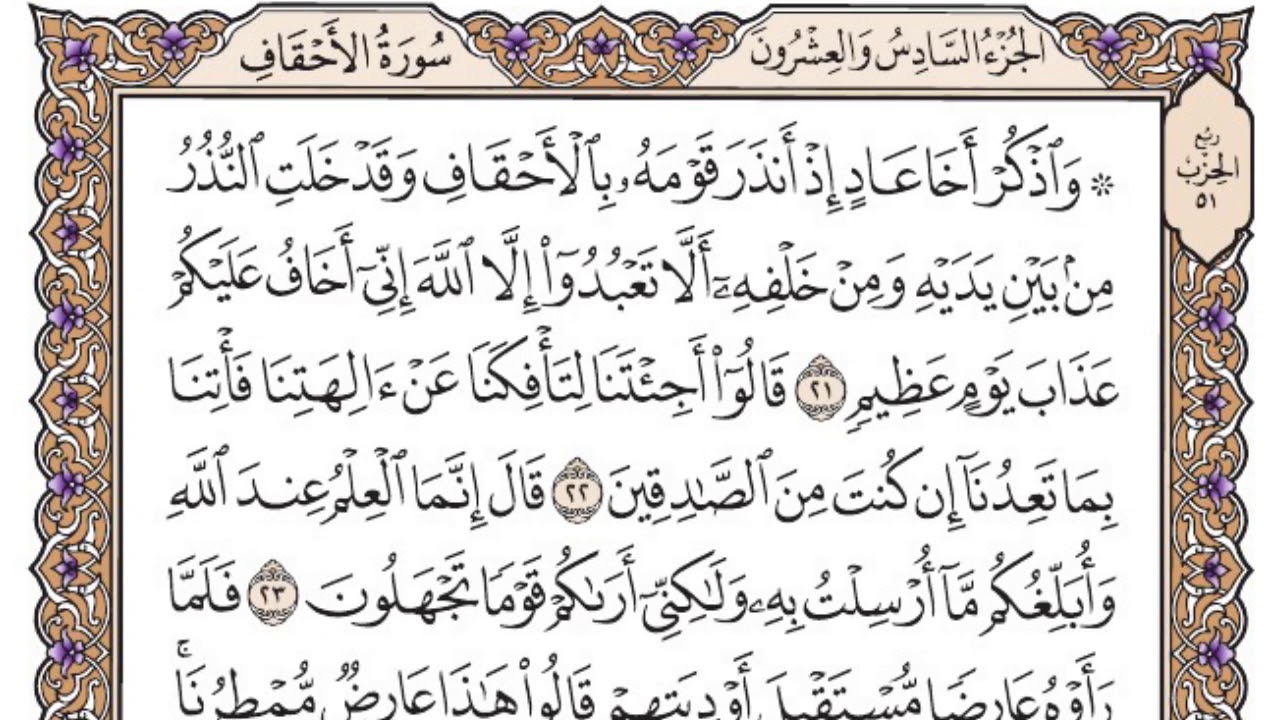 الجُزْءُ السَّادِسُ وَالعِشْرُونَ
سُورَةُ الأَحْقَافِ
رُبْع
الحِزْبُ
٥١
۞ وَٱذْكُرْ أَخَا عَادٍ إِذْ أَنذَرَ قَوْمَهُۥ بِٱلْأَحْقَافِ وَقَدْ خَلَتِ ٱلنُّذُرُ
مِنۢ بَيْنِ يَدَيْهِ وَمِنْ خَلْفِهِۦٓ أَلَّا تَعْبُدُوٓا۟ إِلَّا ٱللَّهَ إِنِّىٓ أَخَافُ عَلَيْكُمْ
عَذَابَ يَوْمٍ عَظِيمٍ ٢١ قَالُوٓا۟ أَجِئْتَنَا لِتَأْفِكَنَا عَنْ ءَالِهَتِنَا فَأْتِنَا
بِمَا تَعِدُنَآ إِن كُنتَ مِنَ ٱلصَّٰدِقِينَ ٢٢ قَالَ إِنَّمَا ٱلْعِلْمُ عِندَ ٱللَّهِ
وَأُبَلِّغُكُم مَّآ أُرْسِلْتُ بِهِۦ وَلَٰكِنِّىٓ أَرَىٰكُمْ قَوْمًا تَجْهَلُونَ ٢٣ فَلَمَّا
رَأَوْهُ عَارِضًا مُّسْتَقْبِلَ أَوْدِيَتِهِمْ قَالُوا۟ هَٰذَا عَارِضٌ مُّمْطِرُنَا ۚ